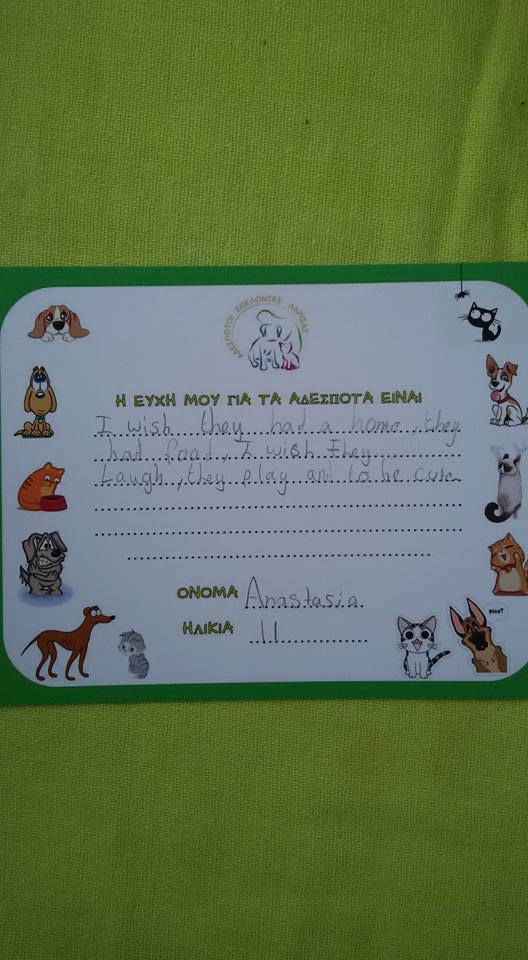 ΑΔΕΣΠΟΤΟΙ ΕΘΕΛΟΝΤΕΣ ΛΑΡΙΣΑΣ
Η ΕΥΧΗ ΜΟΥ ΓΙΑ ΤΑ ΑΔΕΣΠΟΤΑ ΕΙΝΑΙ
I wish they had a home, they
had food, I wish they
Laugh, they play and to be cute
ΟΝΟΜΑ Anastasia
ΗΛΙΚΙΑ 11